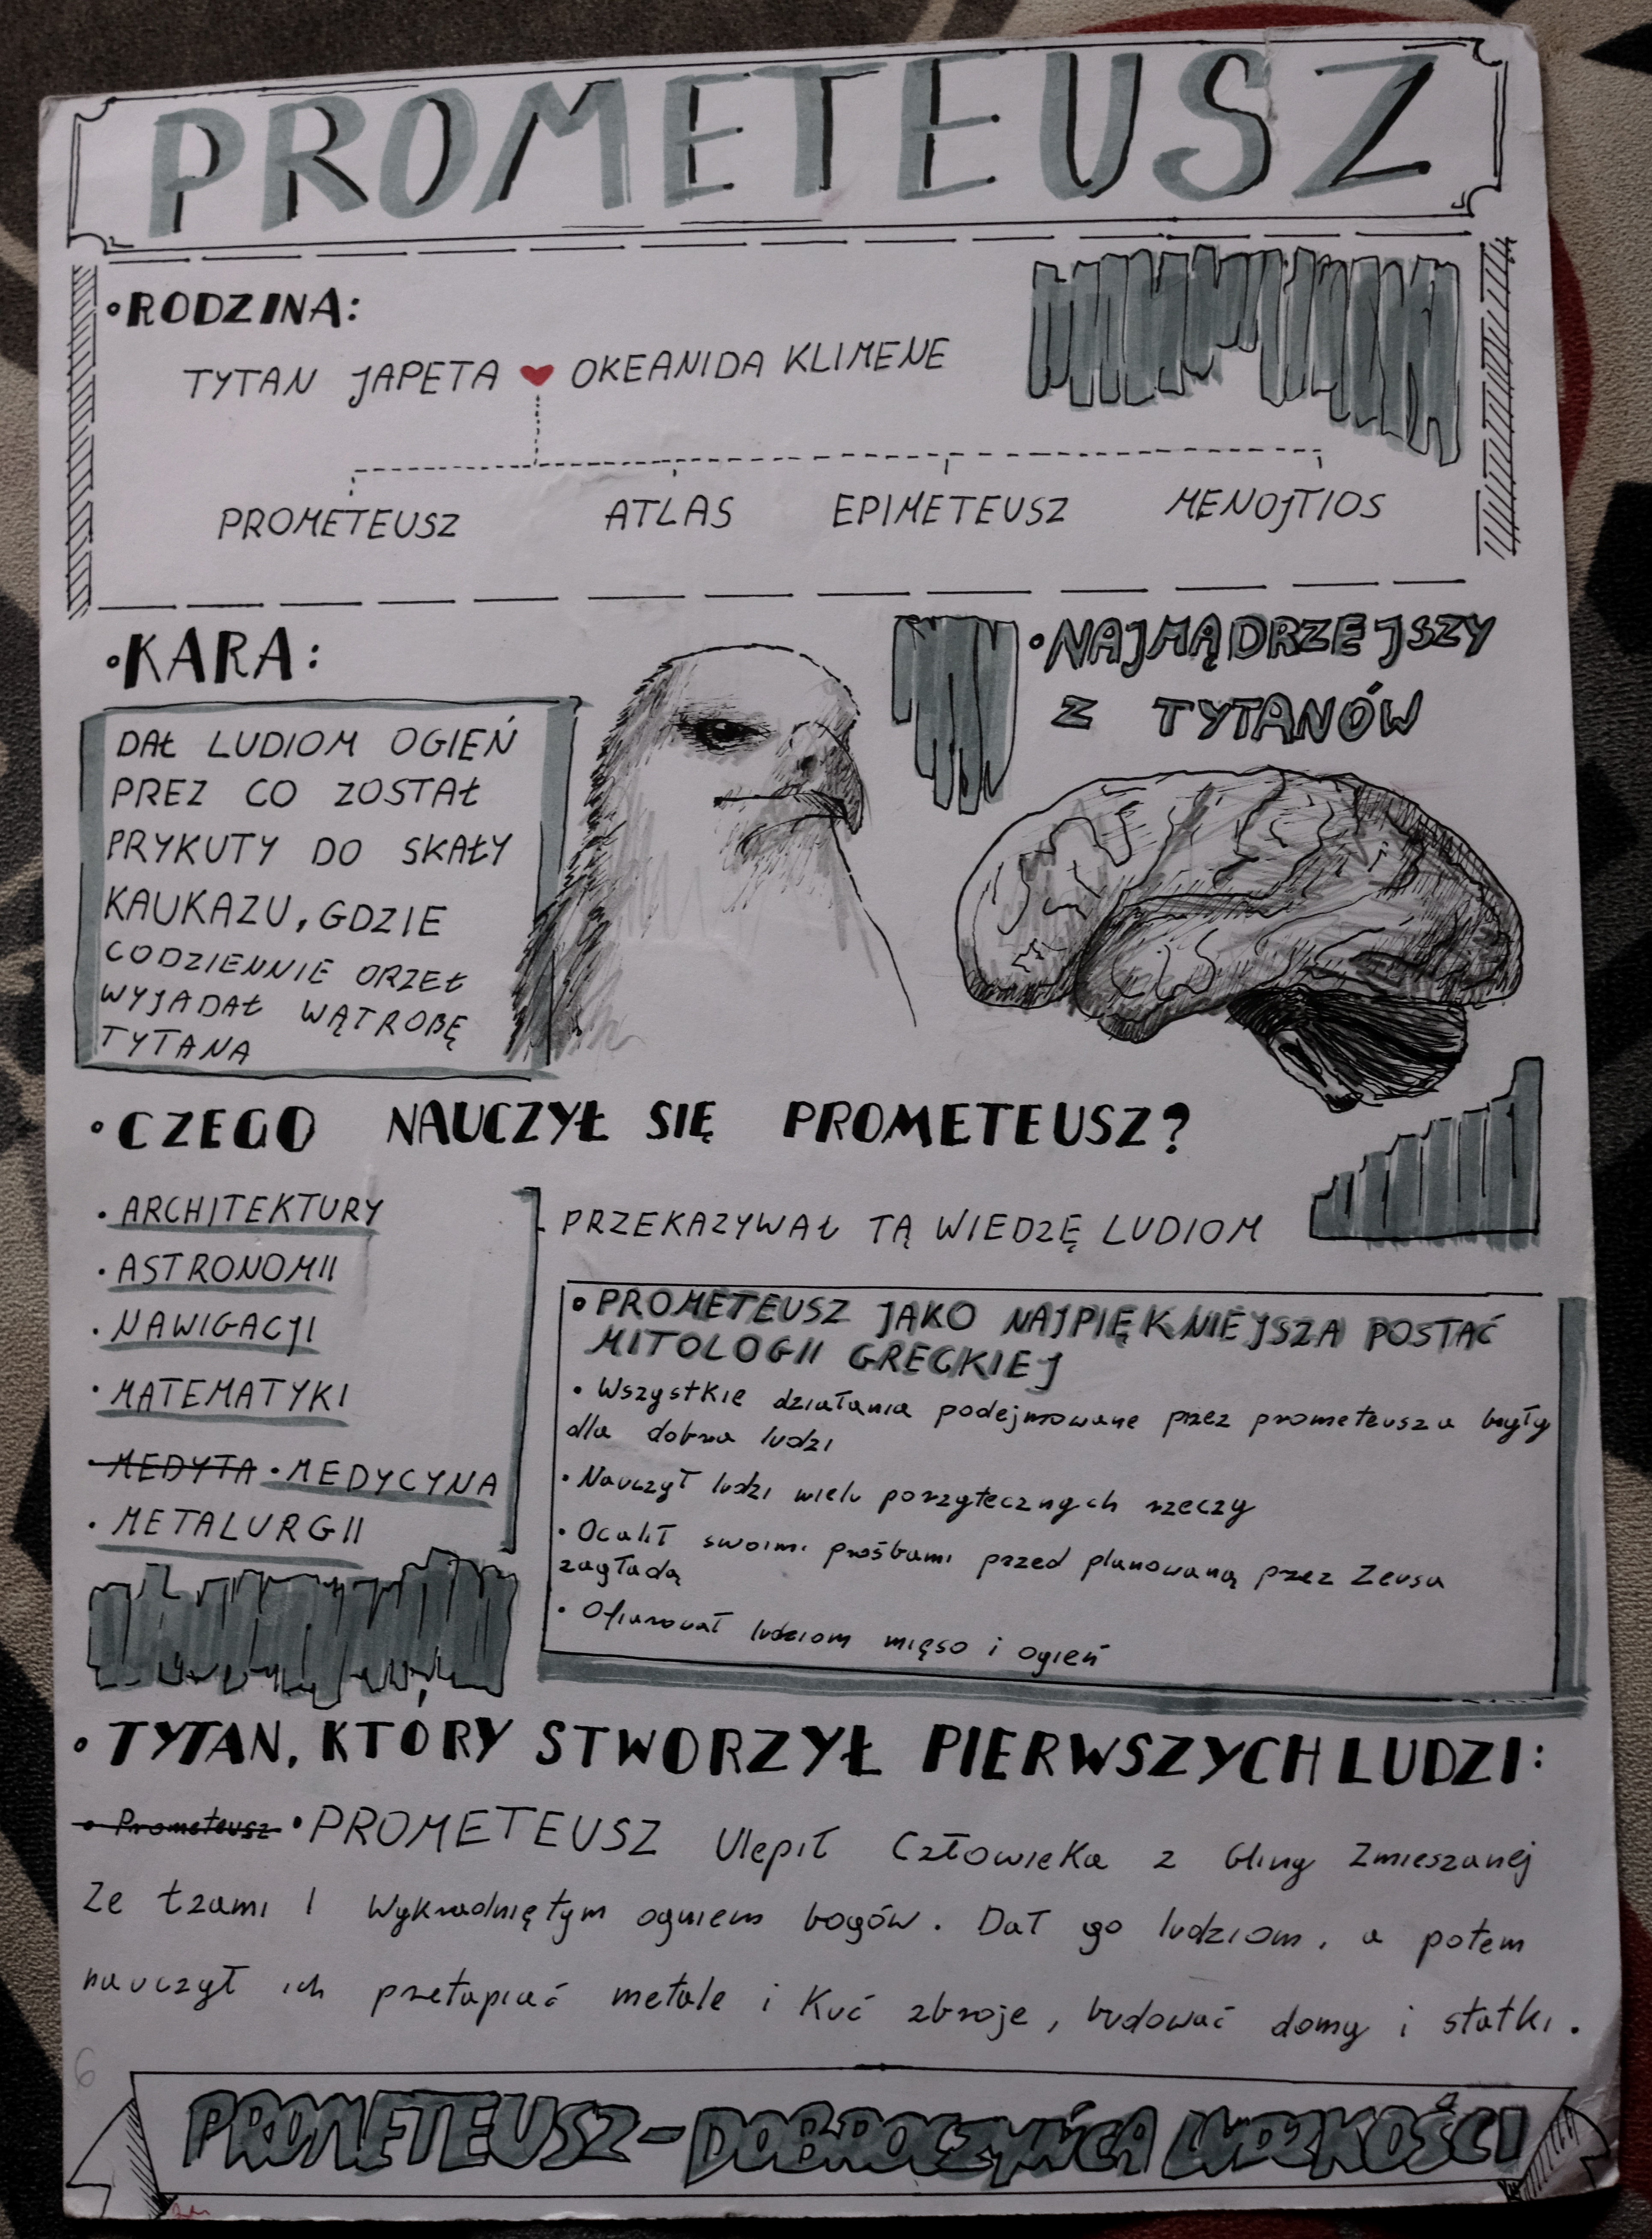 PROMETEUSZ
•RODZINA:
TYTAN JAPETA ❤ OKEANIDA KLIMENE
PROMETEUSZ ATLAS EPIMETEUSZ MENOJTIOS
•KARA:
DAŁ LUDIOM OGIEŃ
PREZ CO ZOSTAŁ
PRYKUTY DO SKAŁY
KAUKAZU, GDZIE
CODZIENNIE ORZEŁ
WYJADAŁ WĄTROBĘ
TYTANA
•NAJMĄDRZEJSZY
Z TYTANÓW
•CZEGO NAUCZYŁ SIĘ PROMETEUSZ?
• ARCHITEKTURY
• ASTRONOMII
• NAWIGACJI
• MATEMATYKI
• MEDYTA • MEDYCYNA
• METALURGII
PRZEKAZYWAŁ TĄ WIEDZĘ LUDIOM
• PROMETEUSZ JAKO NAJPIĘKNIEJSZA POSTAĆ
MITOLOGII GRECKIEJ
• Wszystkie działania podejmowane przez prometeusza były
dla dobra ludzi
• Nauczył ludzi wielu porzytecznych rzeczy
• Ocalił swoimi prośbami przed planowaną przez Zeusa
zagładą
• Ofiarował ludziom mięso i ogień
• TYTAN, KTÓRY STWORZYŁ PIERWSZYCH LUDZI:
• Prometeusz • PROMETEUSZ Ulepił Człowieka z Gliny Zmieszanej
Ze łzami I Wykradniętym ogniem bogów. Dał go ludziom, a potem
nauczył ich przetapiać metale i Kuć zbroje, budować domy i statki.
6
PROMETEUSZ - DOBROCZYŃCA LUDZKOŚCI